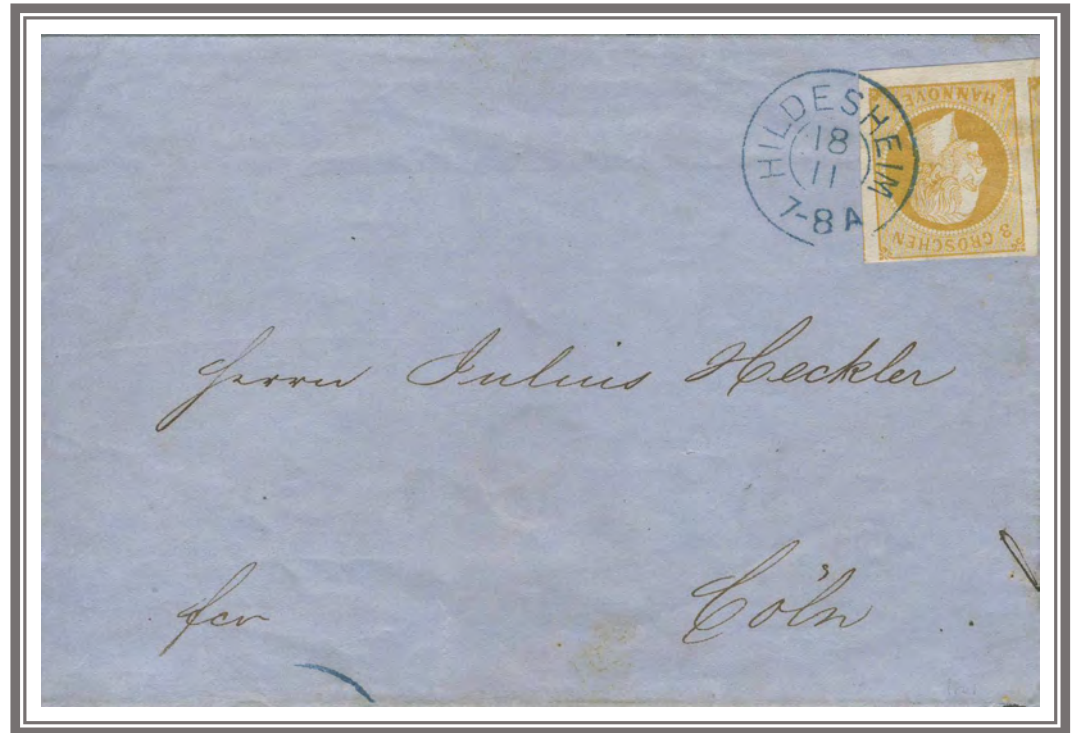 HILDESHEIM
18
11
7-8 A
HANNOVE
3 GROSCHEN
Herrn Julius Heckler
fco
Cöln